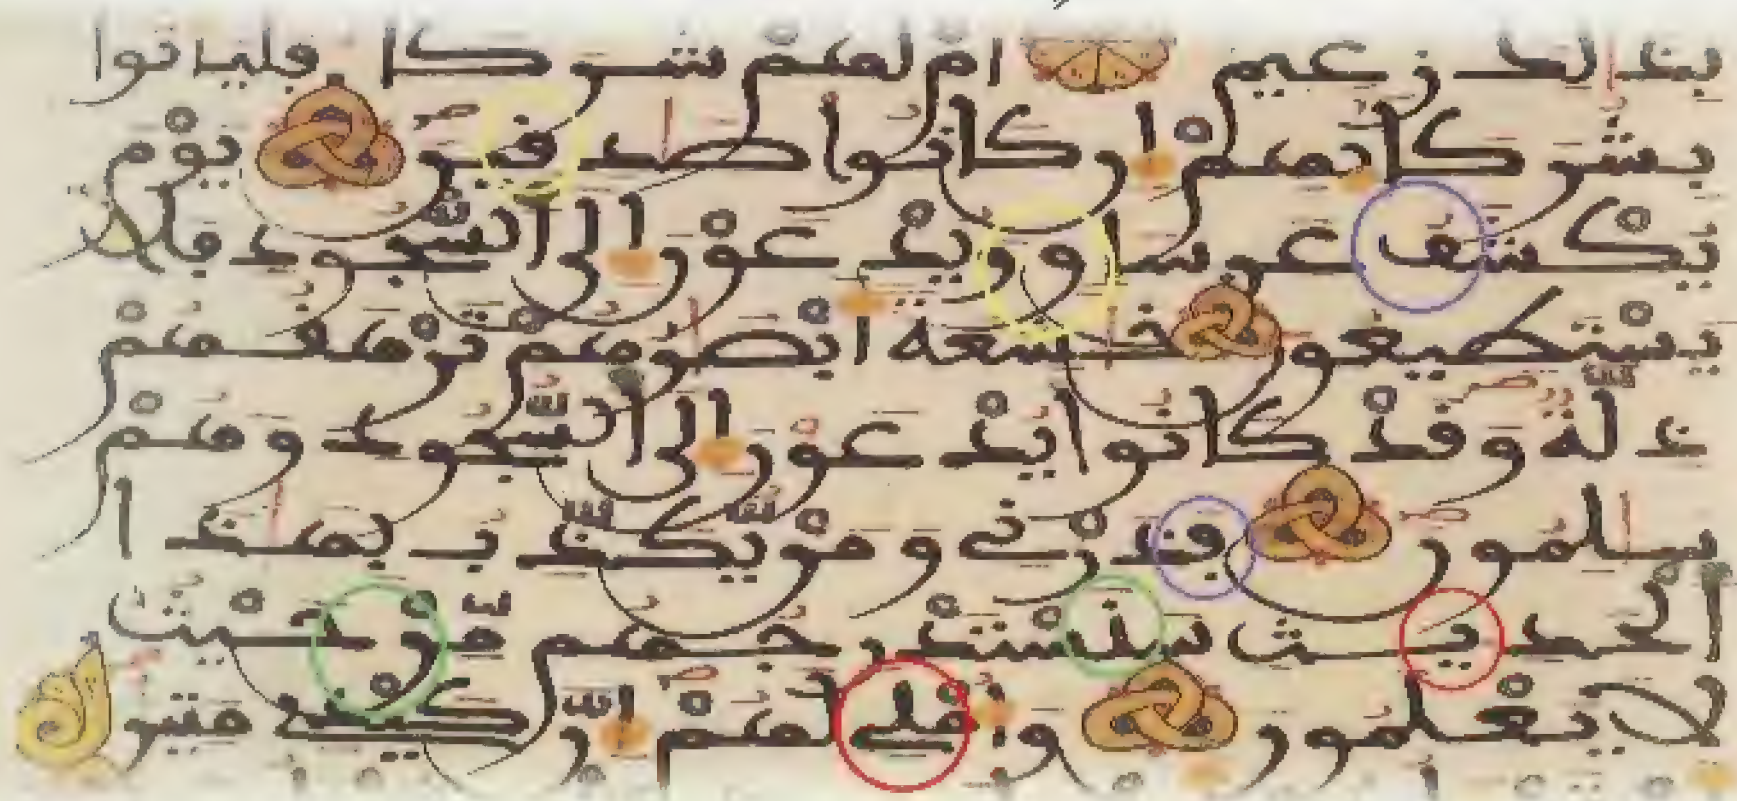 بذلك زعيم ام لهم شركا فلياتوا
بشركايهم ان كانوا صدفين يوم
يكشف عن سا و ويدعون الى السجود فلا
يستطيعون خشعة ابصرهم ترهفهم
ذلة وفد كانوا يدعون الى السجود وهم
سلمون فذرنى ومن يكذب بهذا ا
لحديث سنستدرجهم من حيث
لا يعلمون واملى لهم ان كيدى متين